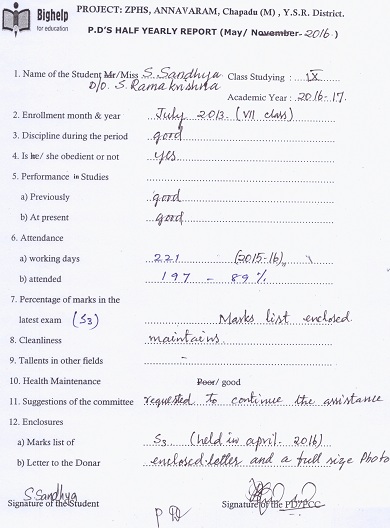 Bighelp
for education
PROJECT: ZPHS, ANNAVARAM, Chapadu (M) , Y.S.R. District.
P.D'S HALF YEARLY REPORT (May/ November-2016 )
1. Name of the Student Mr/Miss S. Sandhya Class Studying : IX
D/O. S. Rama krishna
Academic Year : 2016-17.
2. Enrollment month & year July 2013. (VII class)
3. Discipline during the period good
4. Is he/ she obedient or not yes
5. Performance in Studies
a) Previously good
b) At present good
6. Attendance
a) working days 221 (2015-16)
b) attended 197 - 89%
7. Percentage of marks in the
latest exam (S3) Marks list enclosed.
8. Cleanliness maintains.
9. Tallents in other fields -
10. Health Maintenance Poor/ good
11. Suggestions of the committee requested to continue the assistance
12. Enclosures
a) Marks list of S3 (held in april. 2016)
b) Letter to the Donar enclosed letter and a full size Photo
S. Sandhya
Signature of the Student Signature of the PD/PCC
P D